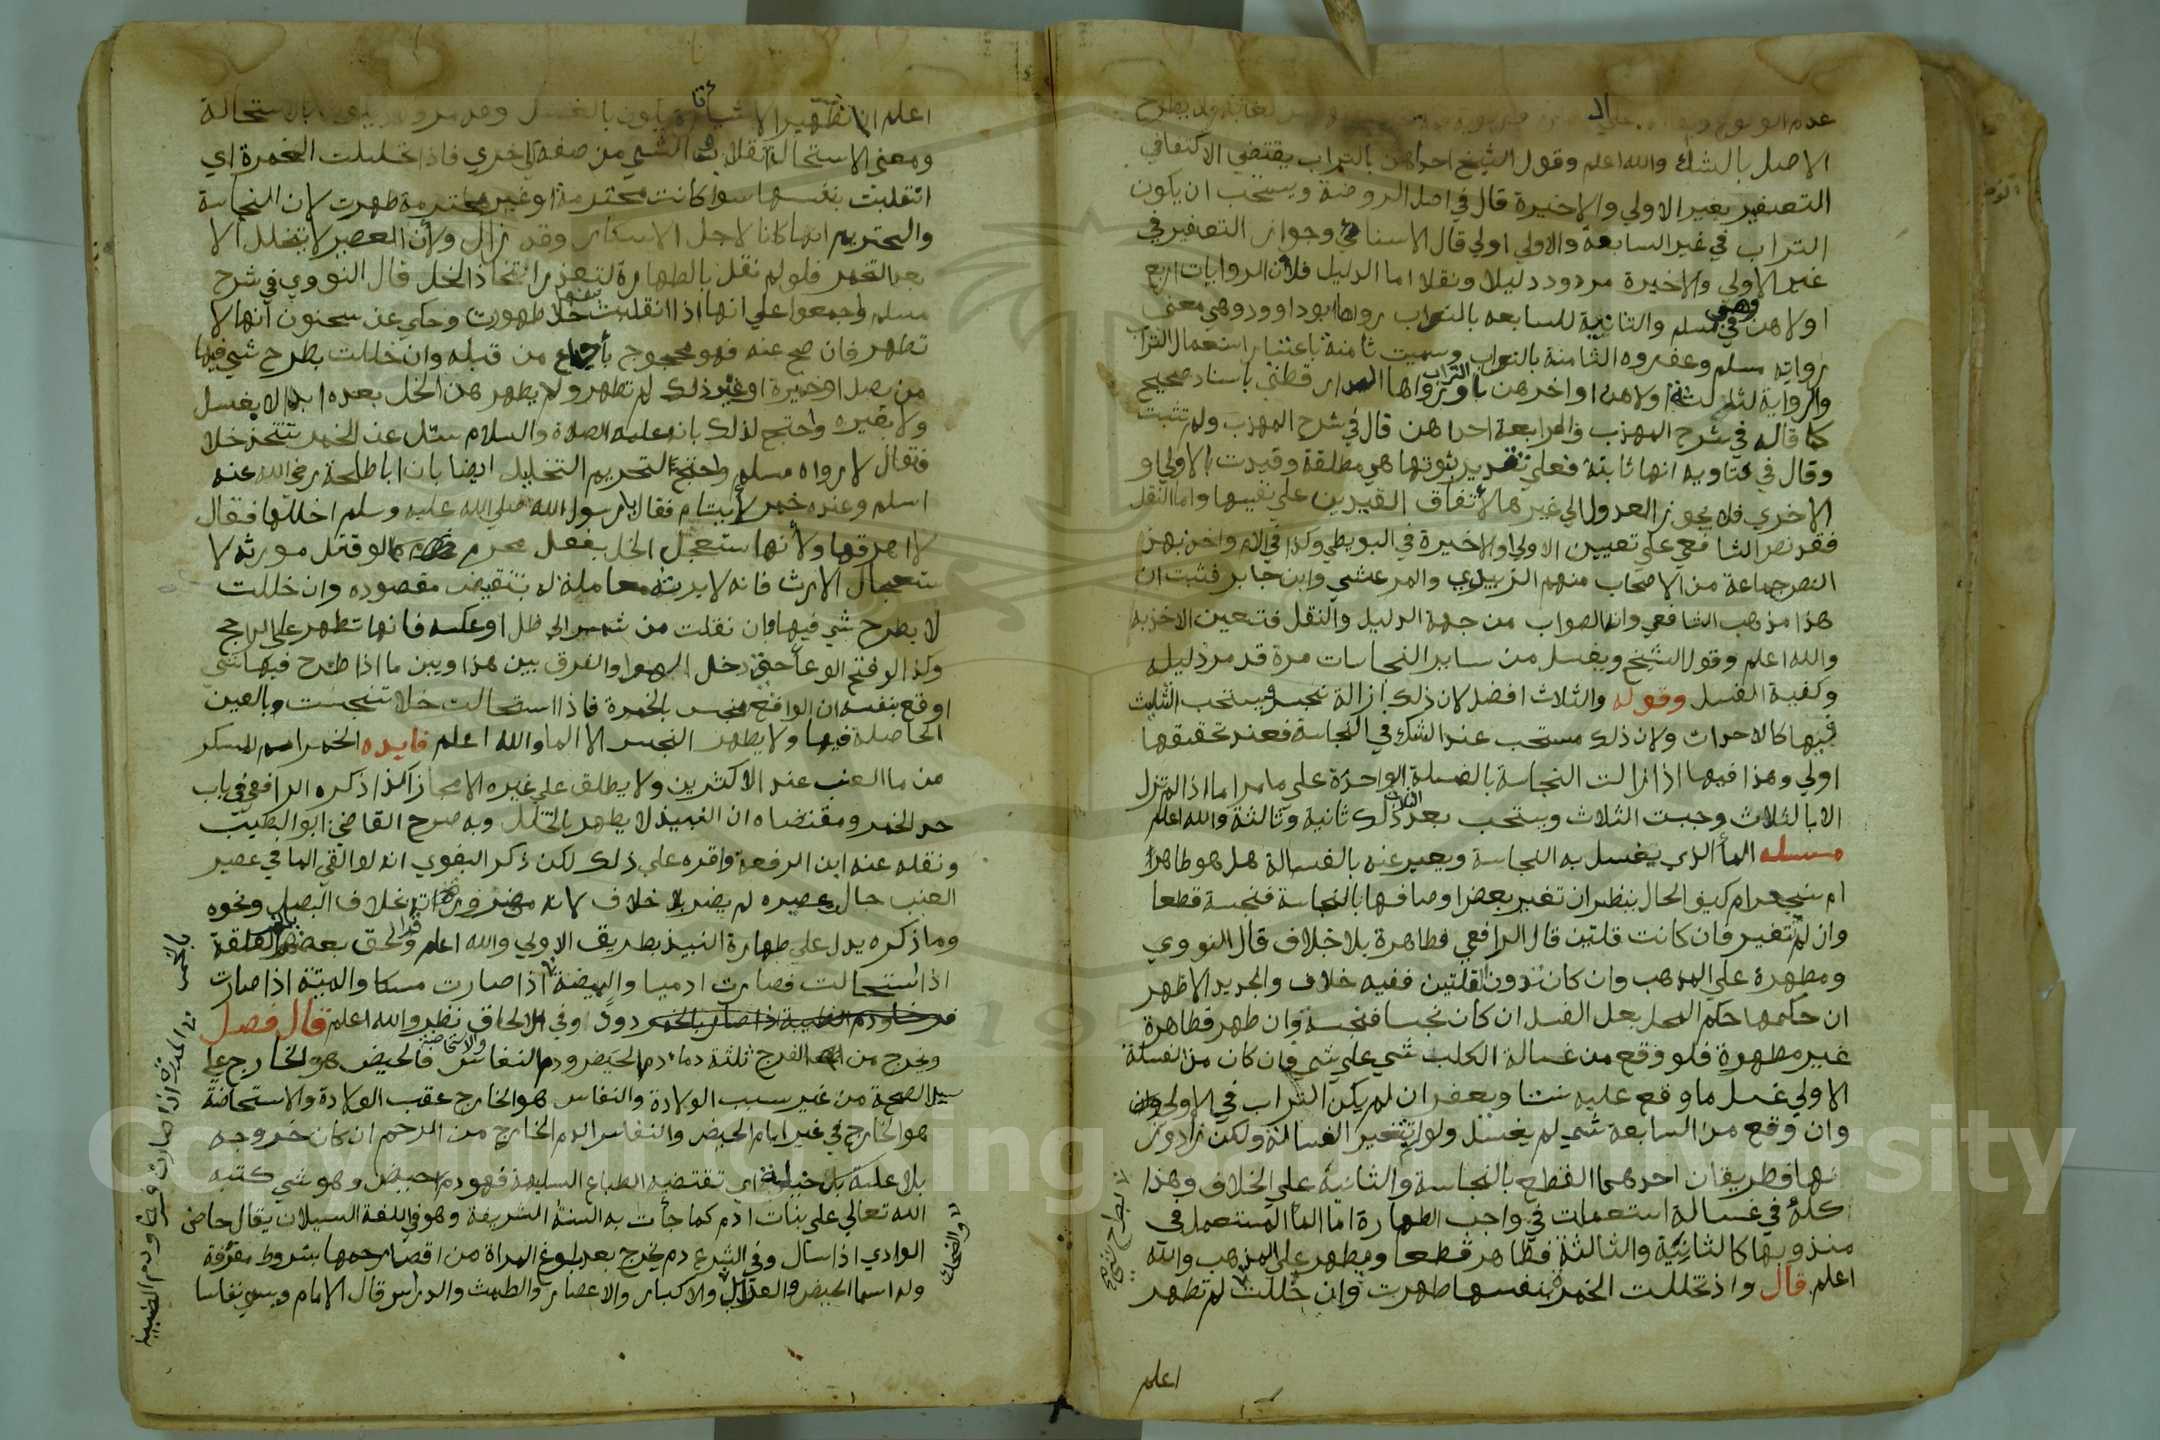 الاصل بالشك والله اعلم وقول الشيخ احداهن بالتراب يقتضي الاكتفا في
التعفير بغير الاولي والاخيرة قال في اصل الروضة ويستحب ان يكون
التراب في غير السابعة والاولي اولي قال الاسنائي وجواز التعفير في
غير الاولي والاخيرة مردود دليلا ونقلا اما الدليل فلأن الروايات اربع
اولاهن وهي في مسلم والثانية للسابعه بالتراب رواها ابوداوود وهي معني
رواية مسلم وعفروه الثامنة بالتراب وسميت ثامنة باعتبار استعمال التراب
والرواية الثالثة اولاهن او اخرهن بالتراب رواها الدار قطني باسناد صحيح
كما قاله في شرح المهذب والرابعة احداهن قال في شرح المهذب ولم تثبت
وقال في فتاويه انها ثابتة فعلي تقدير ثبوتها هي مطلقة وقيدت بالاولي او
الاخري فلا يجوز العدول الي غيرها لاتفاق القيدين علي نفيها واما النقل
فقد نص الشافعي علي تعيين الاولي والاخيرة في البويطي وكذا في الام واخذ بهذا
النص جماعة من الاصحاب منهم الزبيدي والمرعشي وابن جابر فثبت ان
هذا مذهب الشافعي وانه الصواب من جهة الدليل والنقل فتعين الاخذ به
والله اعلم وقول الشيخ ويغسل من ساير النجاسات مرة قد مر دليله
وكفية الغسل وقوله والثلاث افضل لان ذلك ازالة نجس ويستحب التثليث
فيها كالاحداث ولان ذلك مستحب عند الشك في النجاسة فعند تحققها
اولي وهذا فيها اذا زالت النجاسة بالغسلة الواحدة علي ما مر اما اذا لم تزل
الا بالثلاث وجبت الثلاث ويستحب بعد ذلك ثانية وثالثة والله اعلم
مسئله المأ الذي يغسل به النجاسة ويعبر عنه بالغسالة هل هو طاهر
ام نجس ام كيف الحال ينظر ان تغير بعض اوصافها بالنجاسة فنجسة قطعا
وان لم تتغير فان كانت قلتين قال الرافعي فطاهرة بلا خلاف قال النووي
ومطهرة علي المذهب وان كانت دون القلتين ففيه خلاف والجديد الاظهر
ان حكمها حكم المحل بعد الغسل ان كان نجسا فنجسة وان طهر فطاهرة
غير مطهرة فلو وقع من غسالة الكلب شي علي شي فان كان من الغسلة
الاولي غسل ما وقع عليه ستا ويعفر ان لم يكن التراب في الاولي
وان وقع من السابعة شي لم يغسل ولو لم تتغير الغسالة ولكن زاد وز
نها فطريقان احدهما القطع بالنجاسة والثانية علي الخلاف وهذا
كله في غسالة استعملت في واجب الطهارة اما الما المستعمل في
مندوبها كالثانية والثالثة فطاهر قطعا ومطهر علي المذهب والله
اعلم قال واذ تخللت الخمرة بنفسها طهرت وان خللت لم تطهر
اعلم
ومعني الاستحالة انقلاب الشي من صفة لاخري فاذا تخللت الخمرة اي
انقلبت بنفسها سوا كانت محترمة او غير محترمة طهرت لان النجاسة
والتحريم انما كانا لاجل الاسكار وقد زال ولأن العصير لا يتخلل الا
بعد التخمر فلو لم نقل بالطهارة لتعذر اتخاذ الخل قال النووي في شرح
مسلم واجمعوا علي انها اذا انقلبت بنفسها خلا طهورت وحكي عن سحنون انها لا
تطهر فان صح عنه فهو محجوج باجماع من قبله وان خللت بطرح شي فيها
من بصل او خميرة او غير ذلك لم تطهر ولم يطهر هذا الخل بعده ابدا لا بغسل
ولا بغيره واحتج لذلك بانه عليه الصلاة والسلام سئل عن الخمر تتخذ خلا
فقال لا رواه مسلم واحتج لتحريم التخليل ايضا بان ابا طلحة رضي الله عنه
اسلم وعنده خمر لأيتام فقال يا رسول الله صلي الله عليه وسلم اخللها فقال
لا اهرقها ولأنها استعجل الخل بفعل محرم كما لو قتل مورثه لا
ستعجال الارث فانه لا يرثه معاملة له بنقيض مقصوده وان خللت
لا بطرح شي فيها وان نقلت من شمس الي ظل او عكسه فانها تطهر علي الراجح
وكذا لو فتح الوعأ حتي دخل الهوا والفرق بين هذا وبين ما اذا طرح فيها شي
او وقع بنفسه ان الواقع نجس بالخمرة فاذا استحالت خلا تنجست بالعين
الحاصلة فيها ولا يطهر النجس الا الما والله اعلم فايده الخمر اسم للمسكر
من ما العنب عند الاكثرين ولا يطلق علي غيره الا مجازا كذا ذكره الرافعي في باب
حد الخمر ومقتضاه ان النبيذ لا يطهر بالتخلل وبه صرح القاضي ابو الطيب
ونقله عنه ابن الرفعة واقره علي ذلك لكن ذكر البغوي انه لو القي الما في عصير
العنب حال عصيره لم يضر بلا خلاف لانه من ضروراته بخلاف البصل ونحوه
وما ذكره يدل علي طهارة النبيذ بطريق الاولي والله اعلم والحق بعضهم العلقة
اذا استحالت فصارت ادميا والبيضة اذا صارت مسكا والميتة اذا صارت
دودا وفي الالحاق نظر والله اعلم قال فصل
ويخرج من الفرج ثلثة دما دم الحيض ودم النفاس والاستحاضة فالحيض هو الخارج علي
سبيل الصحة من غير سبب الولادة والنفاس هو الخارج عقب الولادة والاستحاضة
هو الخارج في غير ايام الحيض والنفاس الدم الخارج من الرحم ان كان خروجه
بلا علة بل جبلة اي تقتضيه الطباع السليمة فهو دم حيض وهو شي كتبه
الله تعالي علي بنات ادم كما جأت به السنة الشريفة وهو في اللغة السيلان يقال حاض
الوادي اذا سال وفي الشرع دم يخرج بعد بلوغ المراة من اقصا رحمها بشروط معرفة
وله اسما الحيض والعراك والاكبار والاعصار والطمث والدراس قال الامام ويسمي نفاسا
والضحك